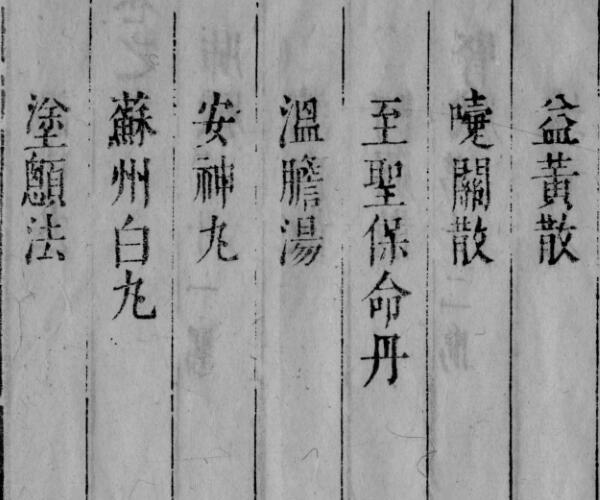 益黃散
嚏關散
至聖保命丹
溫膽湯
安神丸
蘇州白丸
塗顖法